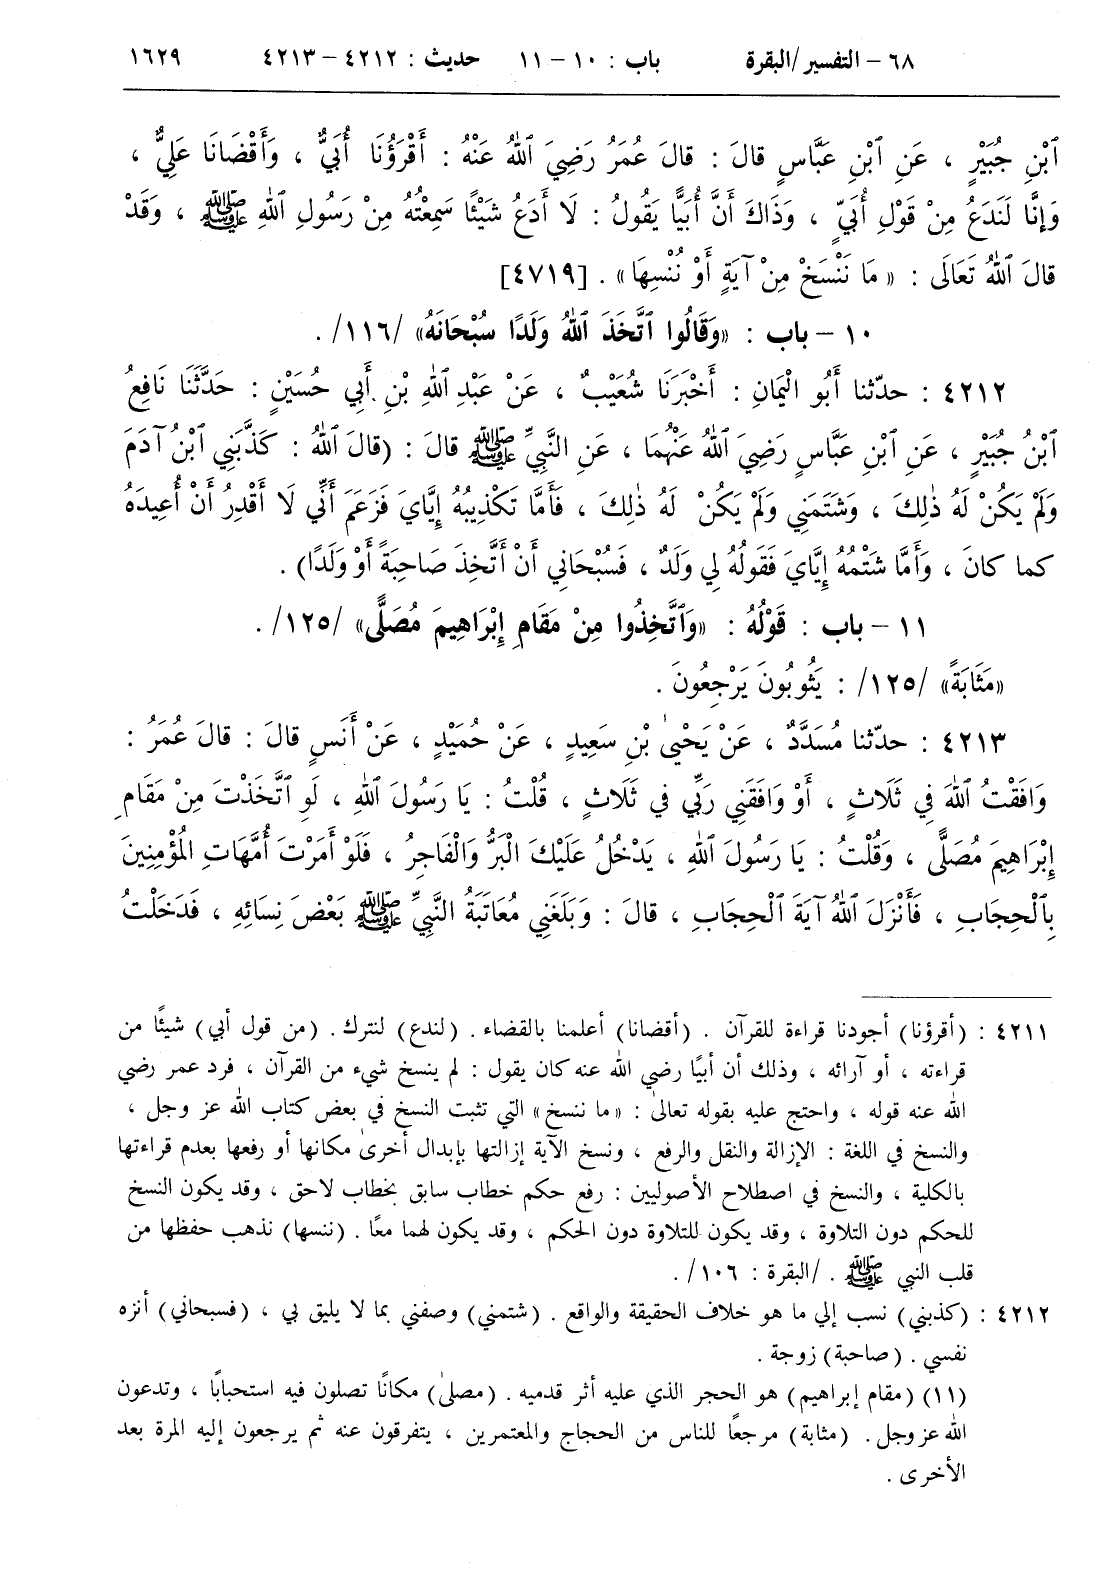 ٦٨ – التفسير/البقرة باب : ١٠ – ١١ حديث : ٤٢١٢ – ٤٢١٣ ١٦٢٩
ٱبْنِ جُبَيْرٍ ، عَنِ ٱبْنِ عَبَّاسٍ قالَ : قالَ عُمَرُ رَضِيَ ٱللهُ عَنْهُ : أَقْرَؤُنَا أُبَيٌّ ، وَأَقْضَانَا عَلِيٌّ ،
وَإِنَّا لَنَدَعُ مِنْ قَوْلِ أُبَيٍّ ، وَذَاكَ أَنَّ أُبَيًّا يَقُولُ : لَا أَدَعُ شَيْئًا سَمِعْتُهُ مِنْ رَسُولِ ٱللهِ ﷺ ، وَقَدْ
قالَ ٱللهُ تَعَالَى : «مَا نَنْسَخْ مِنْ آيَةٍ أَوْ نُنْسِهَا» . [٤٧١٩]
١٠ – باب : «وَقَالُوا ٱتَّخَذَ ٱللهُ وَلَدًا سُبْحَانَهُ» /١١٦/ .
٤٢١٢ : حدّثنا أَبُو الْيَمَانِ : أَخْبَرَنَا شُعَيْبٌ ، عَنْ عَبْدِ ٱللهِ بْنِ أَبِي حُسَيْنٍ : حَدَّثَنَا نَافِعُ
ٱبْنُ جُبَيْرٍ ، عَنِ ٱبْنِ عَبَّاسٍ رَضِيَ ٱللهُ عَنْهُمَا ، عَنِ النَّبِيِّ ﷺ قالَ : (قالَ ٱللهُ : كَذَّبَنِي ٱبْنُ آدَمَ
وَلَمْ يَكُنْ لَهُ ذٰلِكَ ، وَشَتَمَنِي وَلَمْ يَكُنْ لَهُ ذٰلِكَ ، فَأَمَّا تَكْذِيبُهُ إِيَّايَ فَزَعَمَ أَنِّي لَا أَقْدِرُ أَنْ أُعِيدَهُ
كما كانَ ، وَأَمَّا شَتْمُهُ إِيَّايَ فَقَوْلُهُ لِي وَلَدٌ ، فَسُبْحَانِي أَنْ أَتَّخِذَ صَاحِبَةً أَوْ وَلَدًا) .
١١ – باب : قَوْلُهُ : «وَٱتَّخِذُوا مِنْ مَقَامِ إِبْرَاهِيمَ مُصَلًّى» /١٢٥/ .
«مَثَابَةً» /١٢٥/ : يَثُوبُونَ يَرْجِعُونَ .
٤٢١٣ : حدّثنا مُسَدَّدٌ ، عَنْ يَحْيىٰ بْنِ سَعِيدٍ ، عَنْ حُمَيْدٍ ، عَنْ أَنَسٍ قالَ : قالَ عُمَرُ :
وَافَقْتُ ٱللهَ فِي ثَلَاثٍ ، أَوْ وَافَقَنِي رَبِّي فِي ثَلَاثٍ ، قُلْتُ : يَا رَسُولَ ٱللهِ ، لَوِ ٱتَّخَذْتَ مِنْ مَقَامِ
إِبْرَاهِيمَ مُصَلًّى ، وَقُلْتُ : يَا رَسُولَ ٱللهِ ، يَدْخُلُ عَلَيْكَ الْبَرُّ وَالْفَاجِرُ ، فَلَوْ أَمَرْتَ أُمَّهَاتِ الْمُؤْمِنِينَ
بِٱلْحِجَابِ ، فَأَنْزَلَ ٱللهُ آيَةَ الْحِجَابِ ، قالَ : وَبَلَغَنِي مُعَاتَبَةُ النَّبِيِّ ﷺ بَعْضَ نِسَائِهِ ، فَدَخَلْتُ
٤٢١١ : (أقرؤنا) أجودنا قراءة للقرآن . (أقضانا) أعلمنا بالقضاء . (لندع) لنترك . (من قول أبي) شيئًا من
قراءته ، أو آرائه ، وذلك أن أبيًا رضي الله عنه كان يقول : لم ينسخ شيء من القرآن ، فرد عمر رضي
الله عنه قوله ، واحتج عليه بقوله تعالىٰ : «ما ننسخ» التي تثبت النسخ في بعض كتاب الله عز وجل ،
والنسخ في اللغة : الإزالة والنقل والرفع ، ونسخ الآية إزالتها بإبدال أخرىٰ مكانها أو رفعها بعدم قراءتها
بالكلية ، والنسخ في اصطلاح الأصوليين : رفع حكم خطاب سابق بخطاب لاحق ، وقد يكون النسخ
للحكم دون التلاوة ، وقد يكون للتلاوة دون الحكم ، وقد يكون لهما معًا . (ننسها) نذهب حفظها من
قلب النبي ﷺ . /البقرة : ١٠٦/ .
٤٢١٢ : (كذبني) نسب إلي ما هو خلاف الحقيقة والواقع . (شتمني) وصفني بما لا يليق بي ، (فسبحاني) أنزه
نفسي . (صاحبة) زوجة .
(١١) (مقام إبراهيم) هو الحجر الذي عليه أثر قدميه . (مصلىٰ) مكانًا تصلون فيه استحبابًا ، وتدعون
الله عز وجل . (مثابة) مرجعًا للناس من الحجاج والمعتمرين ، يتفرقون عنه ثم يرجعون إليه المرة بعد
الأخرى .